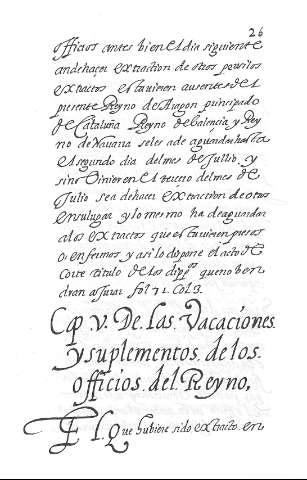 26
officios antes bien el dia siguiente
an de hacer extraction de otros por si los
extractos estuvieren ausentes del
presente Reyno de Aragon principado
de Cataluña Reyno de Valencia y Rey
no de Nauarra se les a de aguardar hasta
el segundo dia del mes de Jullio, y
si no vinieren el tercero del mes de
Julio se a de hacer extraccion de otos
en su lugar y lo mesmo ha de aguardar
a los extractos que estuvieren presos
o, enfermos, y asi lo dispone el acto de
Corte titulo de los dipp.os que no ben
dran a Jurar fol 71. Col 3.
Cap. V. De. las. Vacaciones.
y suplementos. de los.
officios. del. Reyno,
El. Que hubiere sido extracto. en